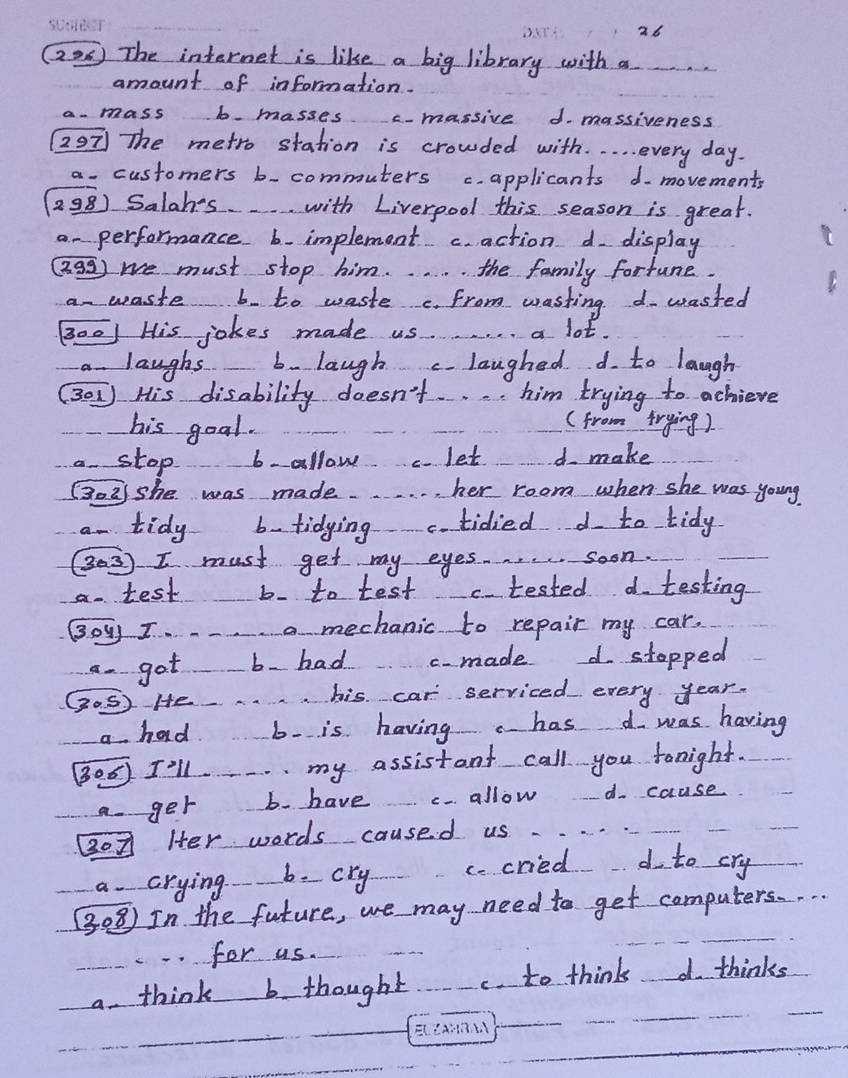 SUBJECT DATE: / / 26
(296) The internet is like a big library with a.....
amount of information.
a- mass b- masses c- massive d- massiveness
(297) The metro station is crowded with.....every day.
a- customers b- commuters c. applicants d- movements
(298) Salah's.....with Liverpool this season is great.
a- performance b- implement c. action d- display
(299) We must stop him.....the family fortune.
a- waste b- to waste c. from wasting d- wasted
(300) His jokes made us.......a lot.
a- laughs b- laugh c- laughed d. to laugh
(301) His disability doesn't.....him trying to achieve
his goal. (from trying)
a- stop b- allow c- let d- make
(302) she was made......her room when she was young
a- tidy b- tidying c- tidied d- to tidy
(303) I must get my eyes......soon.
a- test b- to test c- tested d. testing
(304) I......a mechanic to repair my car.
a- got b- had c- made d. stopped
(305) He.....his car serviced every year.
a- had b- is having c- has d- was having
(306) I'll......my assistant call you tonight.
a- get b- have c- allow d- cause
(307) Her words caused us.....
a- crying b- cry c- cried d- to cry
(308) In the future, we may need to get computers....
....for us.
a- think b- thought c. to think d. thinks
ELZAHRAA